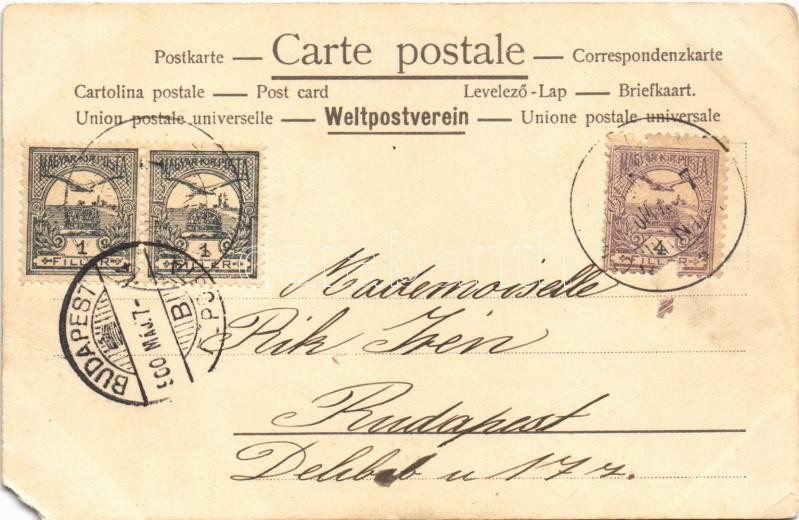 Postkarte — Carte postale — Correspondenzkarte
Cartolina postale — Post card Levelező-Lap — Briefkaart.
Union postale universelle — Weltpostverein — Unione postale universale
MAGYAR KIR. POSTA MAGYAR KIR. POSTA MAGYAR KIR. POSTA
1 1 4
FILLÉR FILLÉR
BUDAPEST
900 MÁJ. 7
darabanth
Mademoiselle
Rik Irén
Budapest
u 17